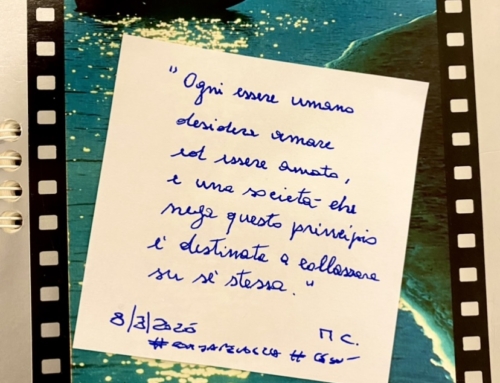 "Ogni essere umano
desidera amare
ed essere amato,
e una società che
nega questo principio
è destinata a collassare
su sé stessa."
8/3/2026
M C.